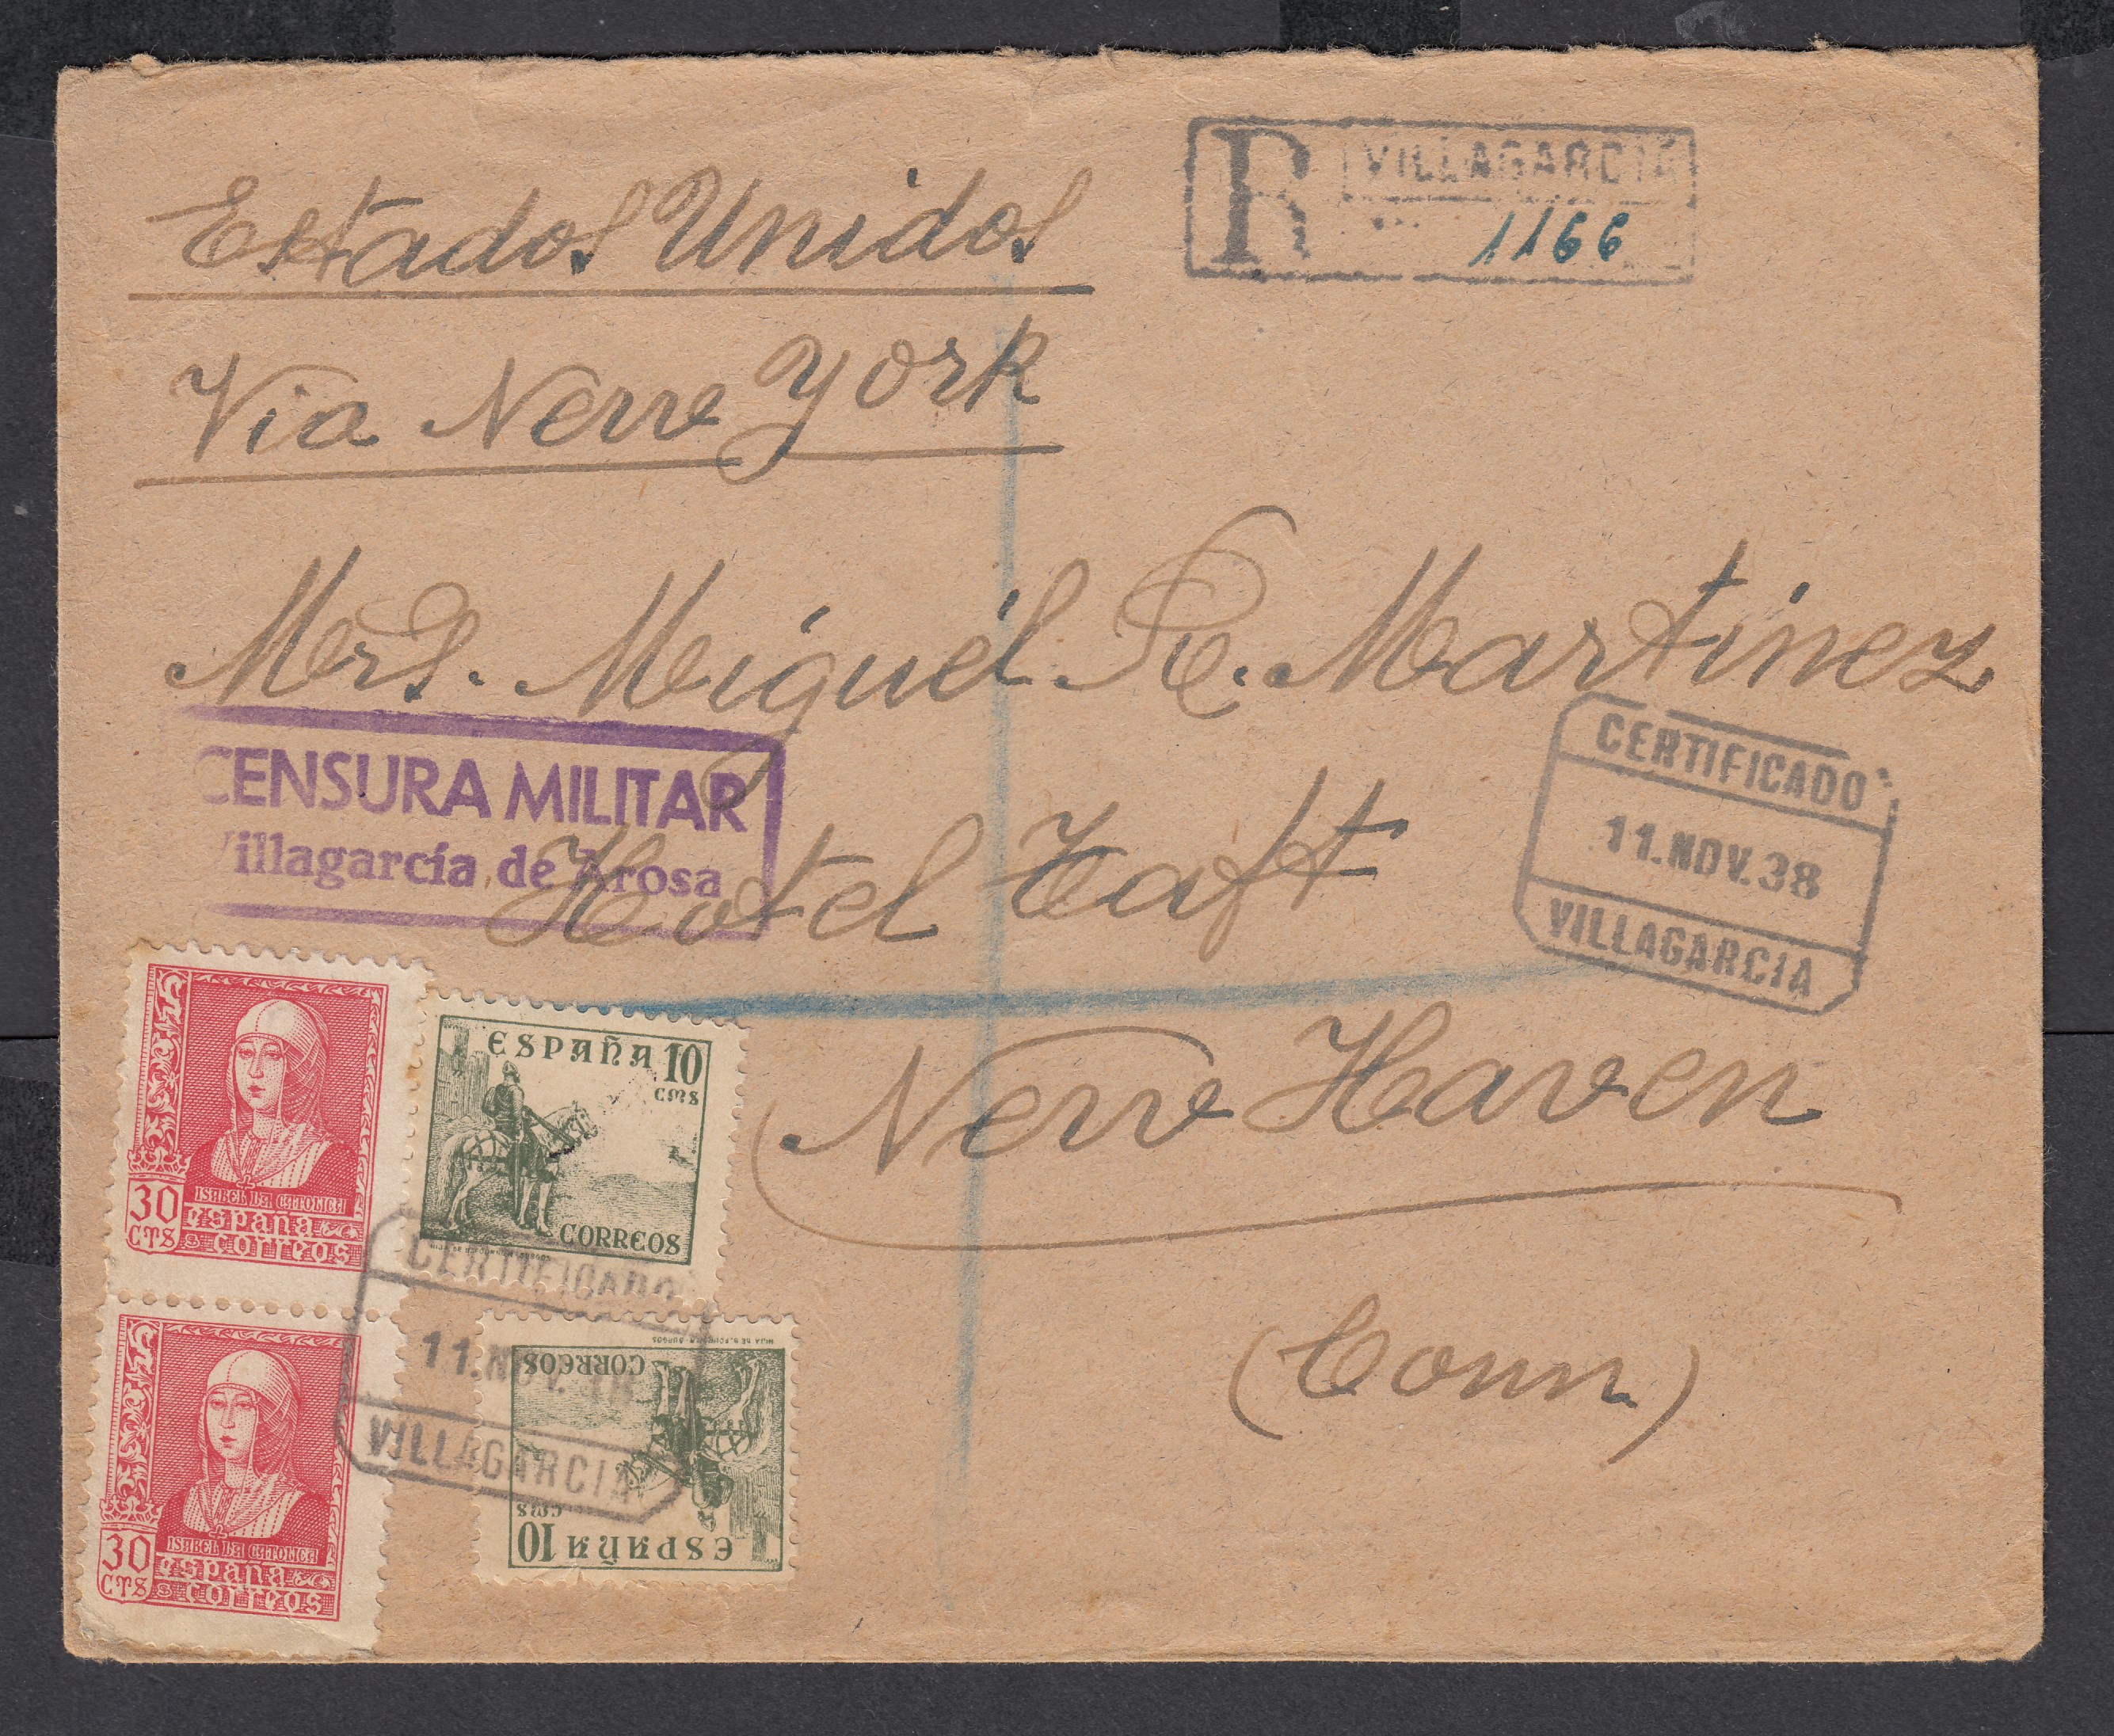 Estados Unidos
Via New York
R VILLAGARCIA
1166
Mrs. Miguel R. Martinez
Hotel Taft
New Haven
(Conn)
CENSURA MILITAR
Villagarcía de Arosa
CERTIFICADO
11.NOV.38
VILLAGARCIA
30
CTS
ISABEL LA CATOLICA
ESPAÑA
CORREOS
ESPAÑA 10
CMS
CORREOS
CERTIFICADO
11.NOV.38
VILLAGARCIA
30
CTS
ISABEL LA CATOLICA
ESPAÑA
CORREOS
ESPAÑA 10
CMS
CORREOS